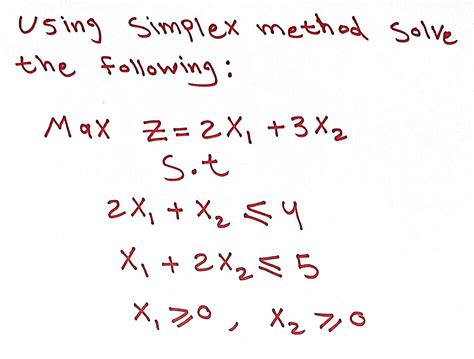 Using Simplex method Solve
the following:
Max Z = 2X₁ + 3X₂
S.t
2X₁ + X₂ ≤ 4
X₁ + 2X₂ ≤ 5
X₁ ≥ 0 , X₂ ≥ 0